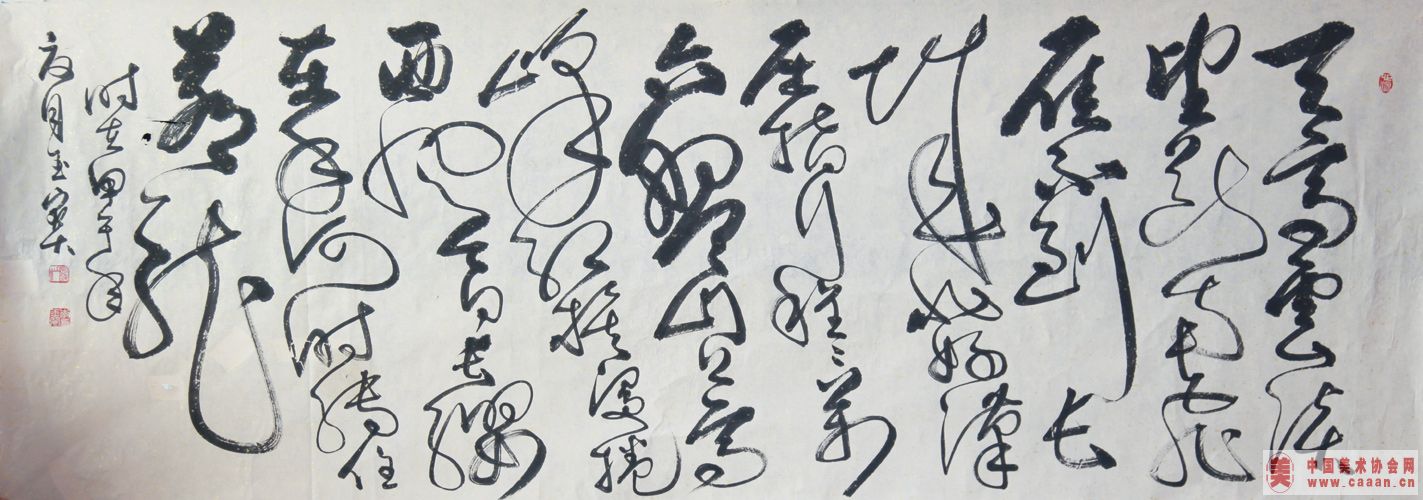 天高雲淡
望断南飛
雁不到长
城非好漢
屈指行程二万
六盤山上高
峰红旗漫捲
西风今日長缨
在手何时缚住
苍龙
时在甲午年
夏月
美 中国美术协会网
www.caaan.cn